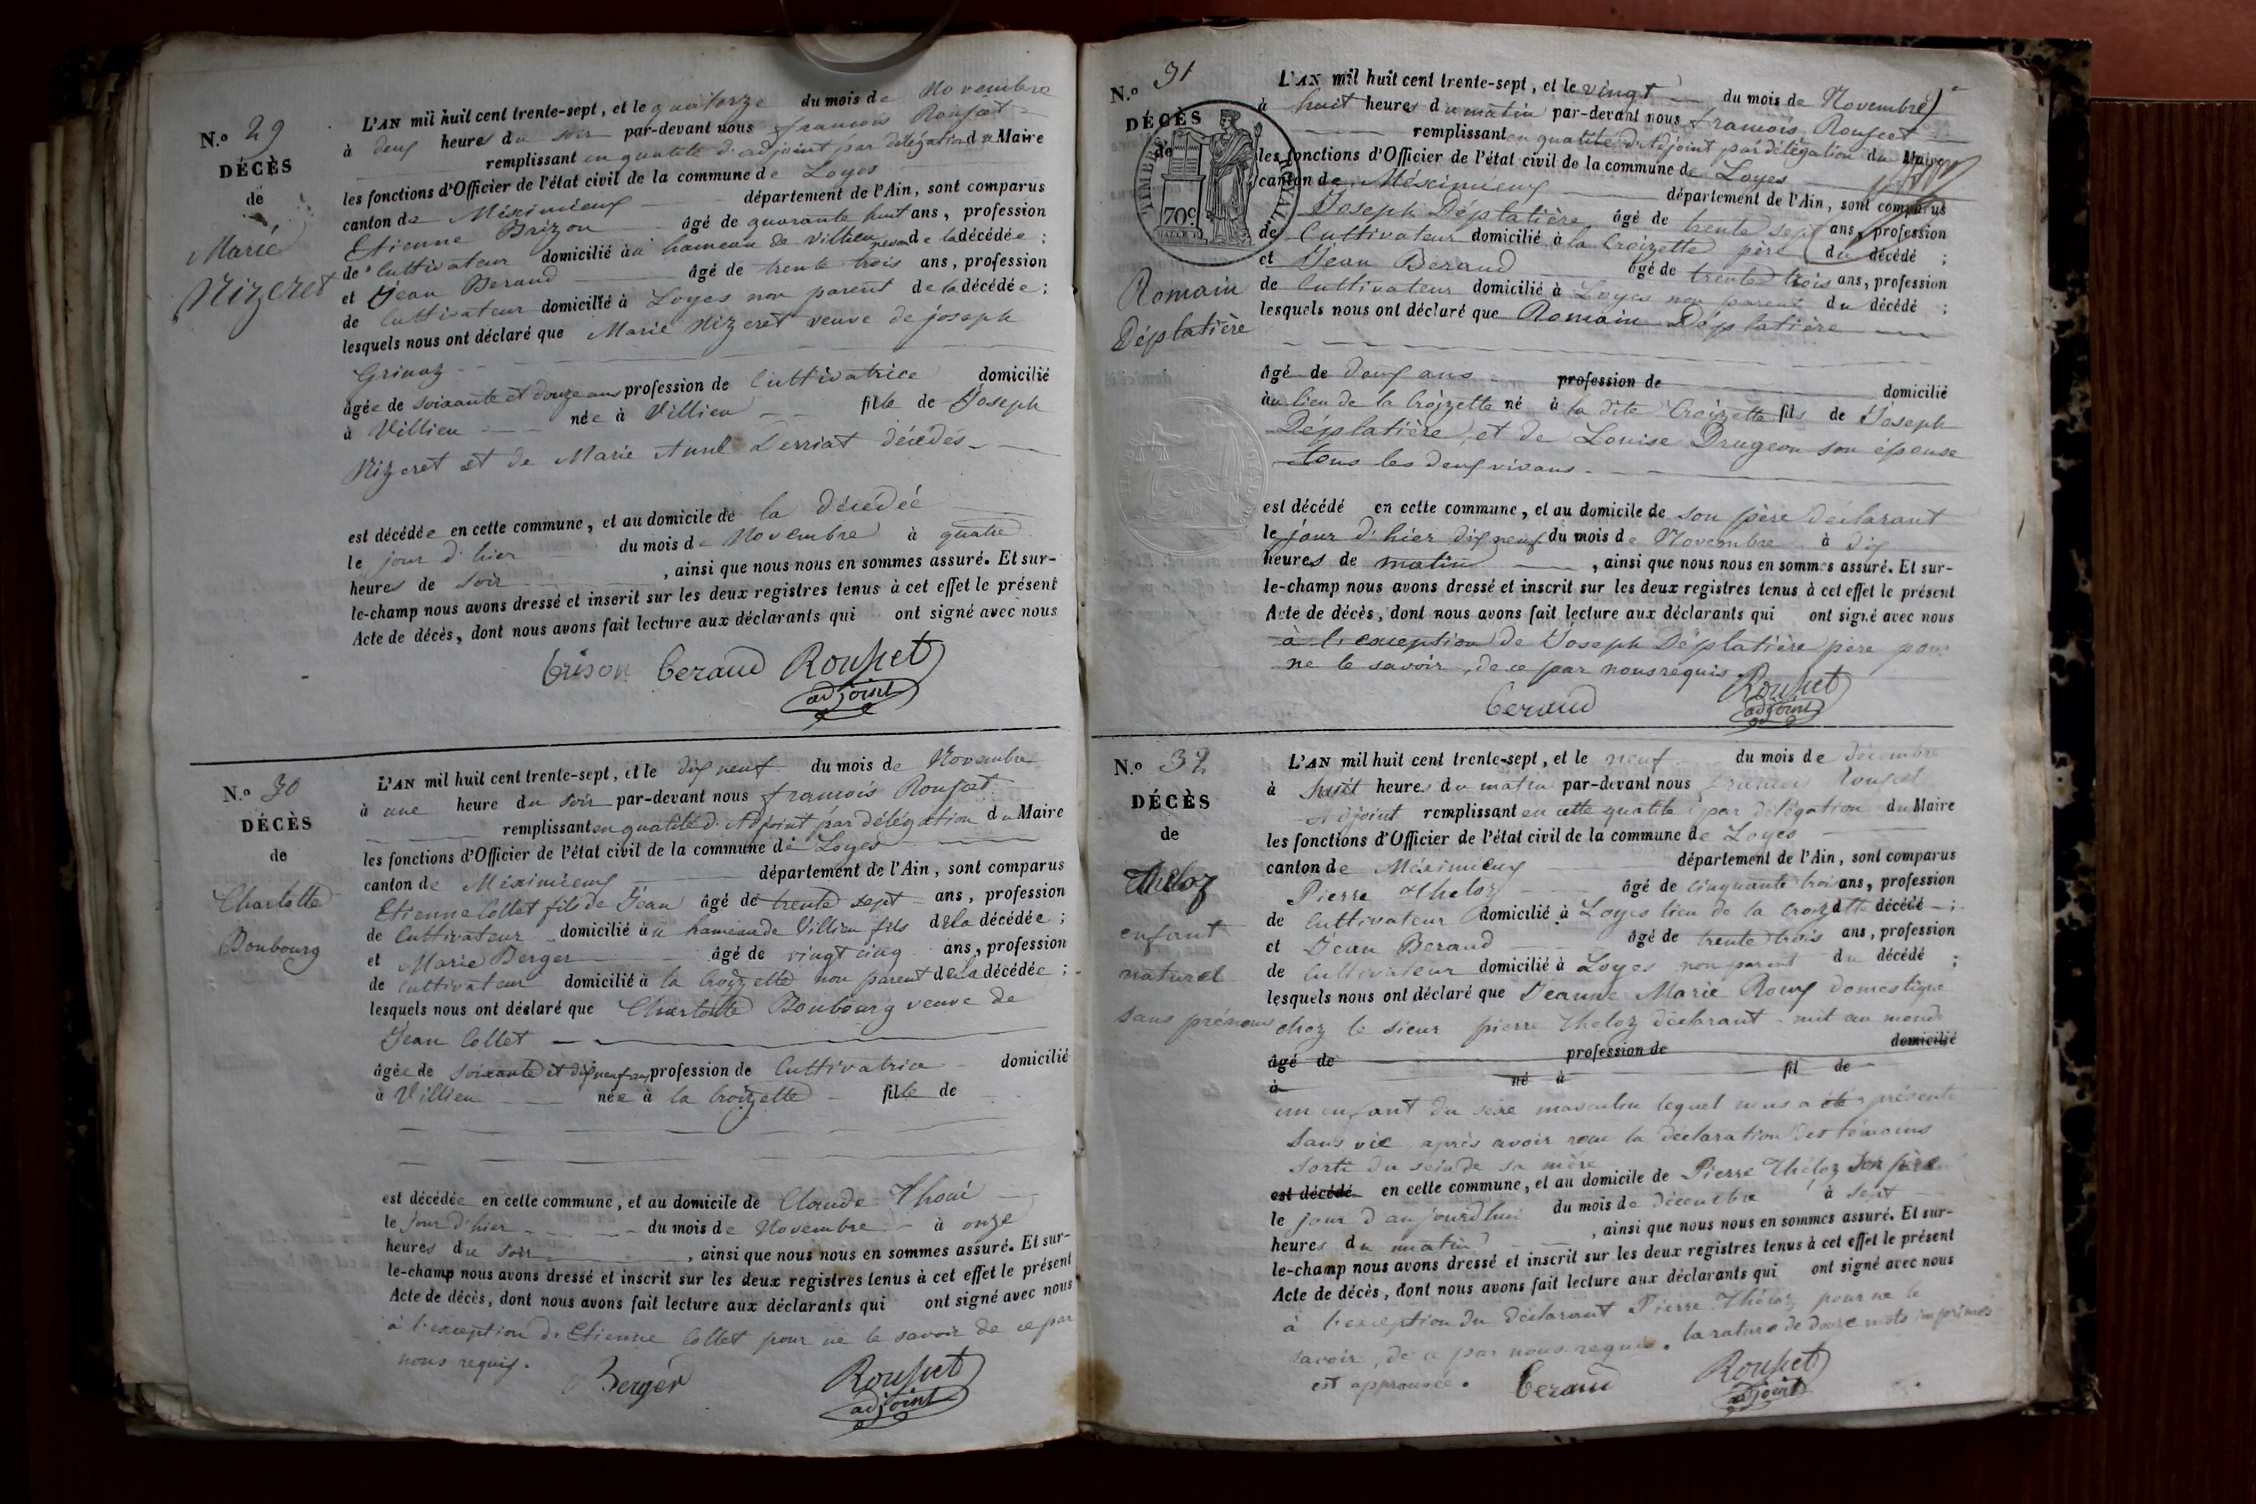 N.o 29
DÉCÈS
de
Marie
Nizeret
L'AN mil huit cent trente-sept, et le quatorze du mois de Novembre
à deux heures du soir par-devant nous francois Rouget
remplissant en qualité d'adjoint par délégation du Maire
les fonctions d'Officier de l'état civil de la commune de Loyes
canton de Méximieux département de l'Ain, sont comparus
Etienne Brizon âgé de quarante huit ans, profession
de Cultivateur domicilié à hameau de Villieu de la décédée ;
et Jean Beraud âgé de trente trois ans, profession
de Cultivateur domicilié à Loyes non parent de la décédée ;
lesquels nous ont déclaré que Marie Nizeret veuve de joseph
âgée de soixante et douze ans profession de Cultivatrice domicilié
à Villieu née à Villieu fille de Joseph
Nizeret et de Marie Anne décédés
est décédée en cette commune, et au domicile de la décédée
le jour d'hier du mois de Novembre à quatre
heures de soir, ainsi que nous nous en sommes assuré. Et sur-
le-champ nous avons dressé et inscrit sur les deux registres tenus à cet effet le présent
Acte de décès, dont nous avons fait lecture aux déclarants qui ont signé avec nous
brison beraud
adjoint
N.o 30
DÉCÈS
de
Charlotte
Bonbourg
L'AN mil huit cent trente-sept, et le dix neuf du mois de Novembre
à une heure du soir par-devant nous francois
remplissant en qualité d'Adjoint par délégation du Maire
les fonctions d'Officier de l'état civil de la commune de Loyes
canton de Méximieux département de l'Ain, sont comparus
Etienne Collet fils de Jean âgé de trente sept ans, profession
de Cultivateur domicilié au hameau de Villieu fils de la décédée ;
et Marie Berger âgé de vingt cinq ans, profession
de cultivateur domicilié à la Croizette non parent de la décédée ;
lesquels nous ont déclaré que Charlotte Bonbourg veuve de
Jean Collet
âgée de soixante et dix neuf ans profession de Cultivatrice domicilié
à Villieu née à la Croizette fille de
est décédée en cette commune, et au domicile de Claude
le jour d'hier du mois de Novembre à onze
heures du soir, ainsi que nous nous en sommes assuré. Et sur-
le-champ nous avons dressé et inscrit sur les deux registres tenus à cet effet le présent
Acte de décès, dont nous avons fait lecture aux déclarants qui ont signé avec nous
à l'exception de Etienne Collet pour ne le savoir de ce par
nous requis.
Berger
adjoint
N.o 31
DÉCÈS
de
TIMBRE ROYAL
70c
Romain
Déplatière
L'AN mil huit cent trente-sept, et le vingt du mois de Novembre
à huit heures du matin par-devant nous francois
remplissant en qualité d'Adjoint par délégation du Maire
les fonctions d'Officier de l'état civil de la commune de Loyes
canton de Méximieux département de l'Ain, sont comparus
Joseph Déplatière âgé de trente sept ans, profession
de Cultivateur domicilié à la Croizette père du décédé ;
et Jean Beraud âgé de trente trois ans, profession
de Cultivateur domicilié à Loyes non parent du décédé ;
lesquels nous ont déclaré que Romain Déplatière
âgé de deux ans profession de domicilié
au lieu de la Croizette né à la dite Croizette fils de Joseph
Déplatière, et de Louise Drugeon son épouse
tous les deux vivans
est décédé en cette commune, et au domicile de son père déclarant
le jour d'hier dix neuf du mois de Novembre à dix
heures de matin, ainsi que nous nous en sommes assuré. Et sur-
le-champ nous avons dressé et inscrit sur les deux registres tenus à cet effet le présent
Acte de décès, dont nous avons fait lecture aux déclarants qui ont signé avec nous
à l'exception de Joseph Déplatière père pour
ne le savoir, de ce par nous requis.
beraud
adjoint
N.o 32
DÉCÈS
de
Théloz
enfant
naturel
sans prénoms
L'AN mil huit cent trente-sept, et le neuf du mois de décembre
à huit heures du matin par-devant nous
adjoint remplissant en cette qualité par délégation du Maire
les fonctions d'Officier de l'état civil de la commune de Loyes
canton de Méximieux département de l'Ain, sont comparus
Pierre Theloz âgé de cinquante trois ans, profession
de Cultivateur domicilié à Loyes lieu de la Croizette décédé ;
et Jean Beraud âgé de trente trois ans, profession
de Cultivateur domicilié à Loyes non parent du décédé ;
lesquels nous ont déclaré que Jeanne Marie Roux domestique
chez le sieur pierre Theloz déclarant mit au monde
âgé de profession de domicilié
à né à fil de
un enfant du sexe masculin lequel nous a été présenté
sans vie, après avoir reçu la déclaration des témoins
sorti du sein de sa mère
est décédé en cette commune, et au domicile de Pierre Théloz
le jour d'aujourdhui du mois de décembre à sept
heures du matin, ainsi que nous nous en sommes assuré. Et sur-
le-champ nous avons dressé et inscrit sur les deux registres tenus à cet effet le présent
Acte de décès, dont nous avons fait lecture aux déclarants qui ont signé avec nous
à l'exception du déclarant Pierre Théloz pour ne le
savoir, de ce par nous requis. la rature de douze mots imprimés
est approuvée.
beraud
adjoint